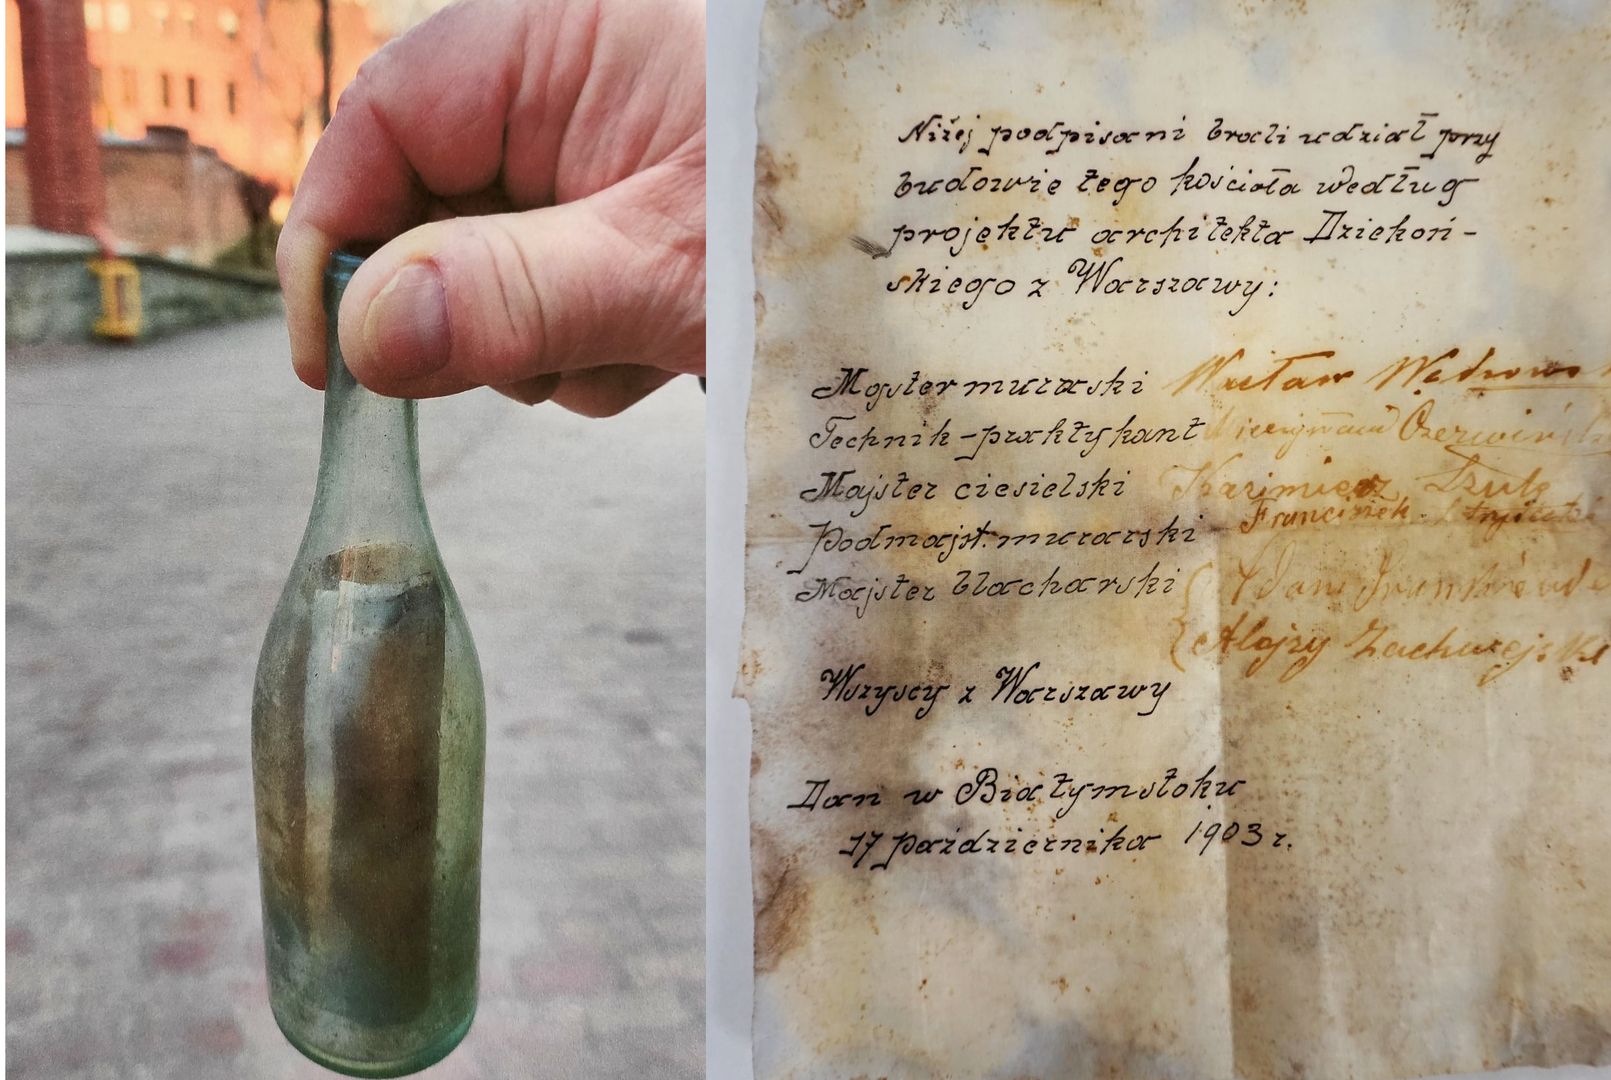 Niżej podpisani brali udział przy
budowie tego kościoła według
projektu architekta Dziekoń-
skiego z Warszawy:
Majster murarski Wacław
Technik-praktykant
Majster ciesielski Kazimierz Szulc
Podmajst. murarski - Franciszek
Majster blacharski Adam
Alojzy
Wszyscy z Warszawy
Dan w Białymstoku
17 października 1903 r.